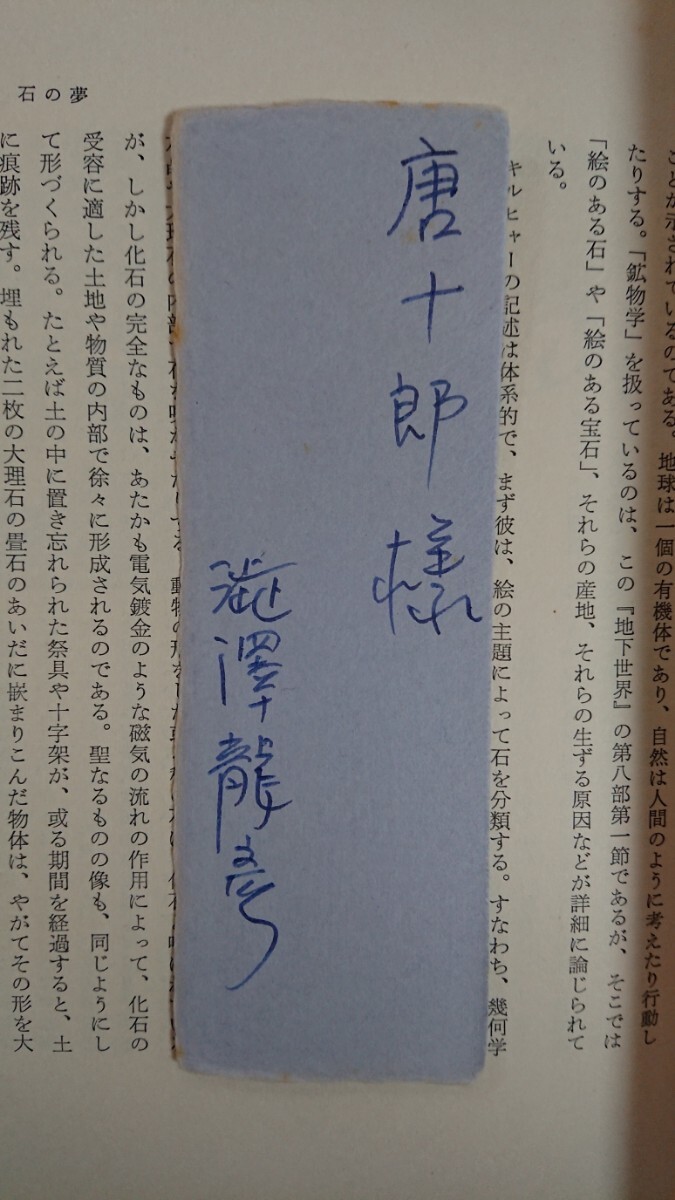 ことが示されているのである。地球は一個の有機体であり、自然は人間のように考えたり行動し
たりする。「鉱物学」を扱っているのは、この『地下世界』の第八部第一節であるが、そこでは
「絵のある石」や「絵のある宝石」、それらの産地、それらの生ずる原因などが詳細に論じられて
いる。
キルヒャーの記述は体系的で、まず彼は、絵の主題によって石を分類する。すなわち、幾何学
唐十郎様
澁澤龍彦
が、しかし化石の完全なものは、あたかも電気鍍金のような磁気の流れの作用によって、化石の
受容に適した土地や物質の内部で徐々に形成されるのである。聖なるものの像も、同じようにし
て形づくられる。たとえば土の中に置き忘れられた祭具や十字架が、或る期間を経過すると、土
に痕跡を残す。埋もれた二枚の大理石の畳石のあいだに嵌まりこんだ物体は、やがてその形を大
石の夢